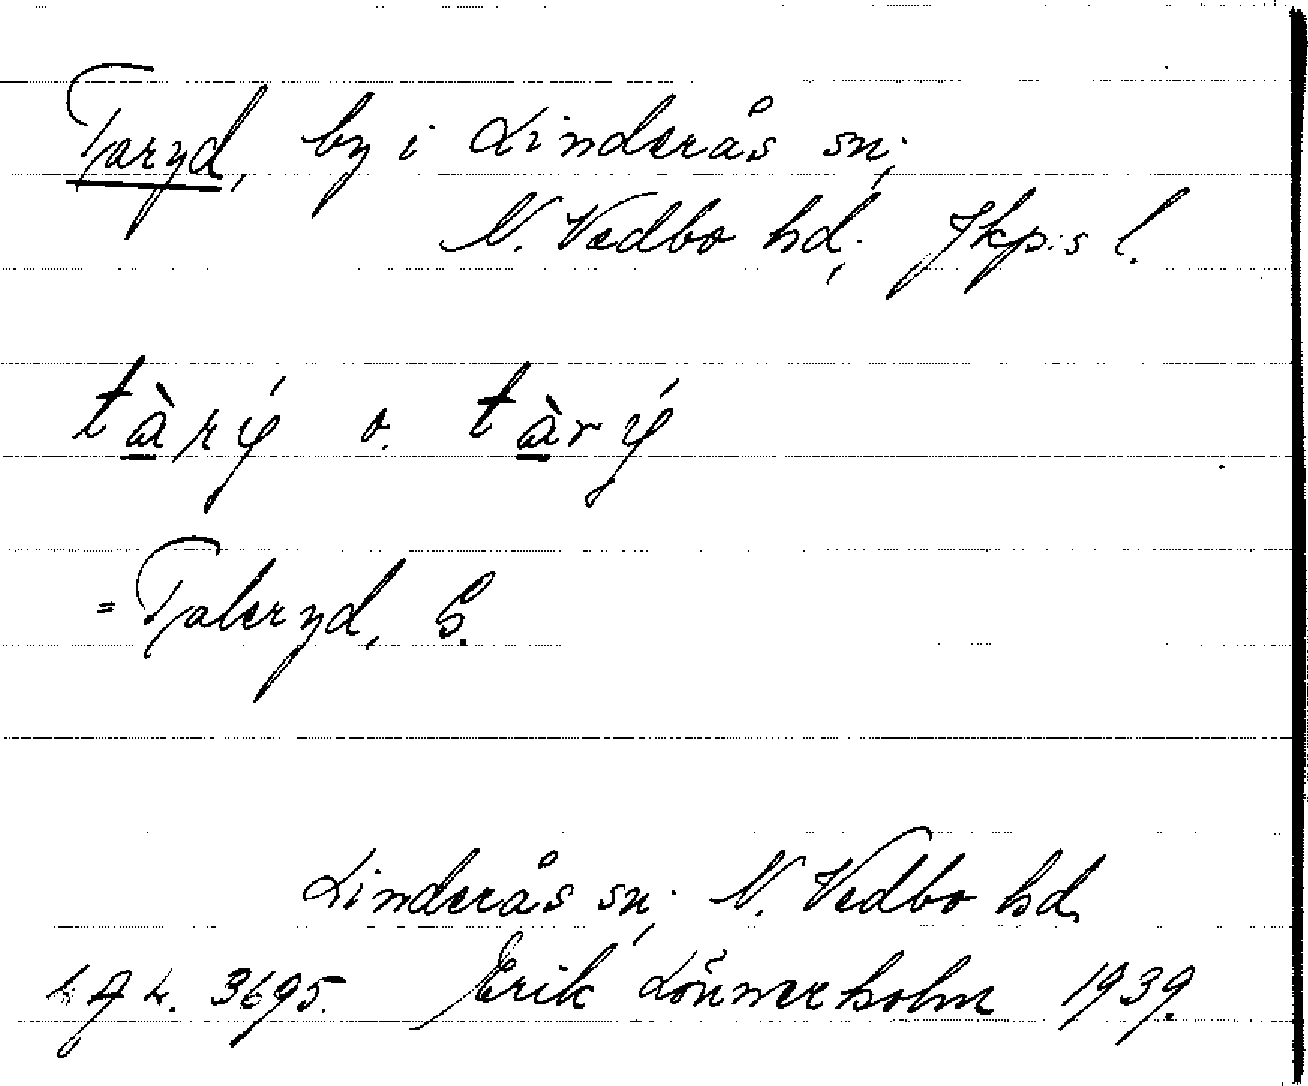 Taryd, by i Linderås sn;
N. Vedbo hd; Jkp:s l.
tàrý o. tàrý
= Taleryd, G.
Linderås sn; N. Vedbo hd.
LAL. 3695. Erik Lönnerholm 1939.